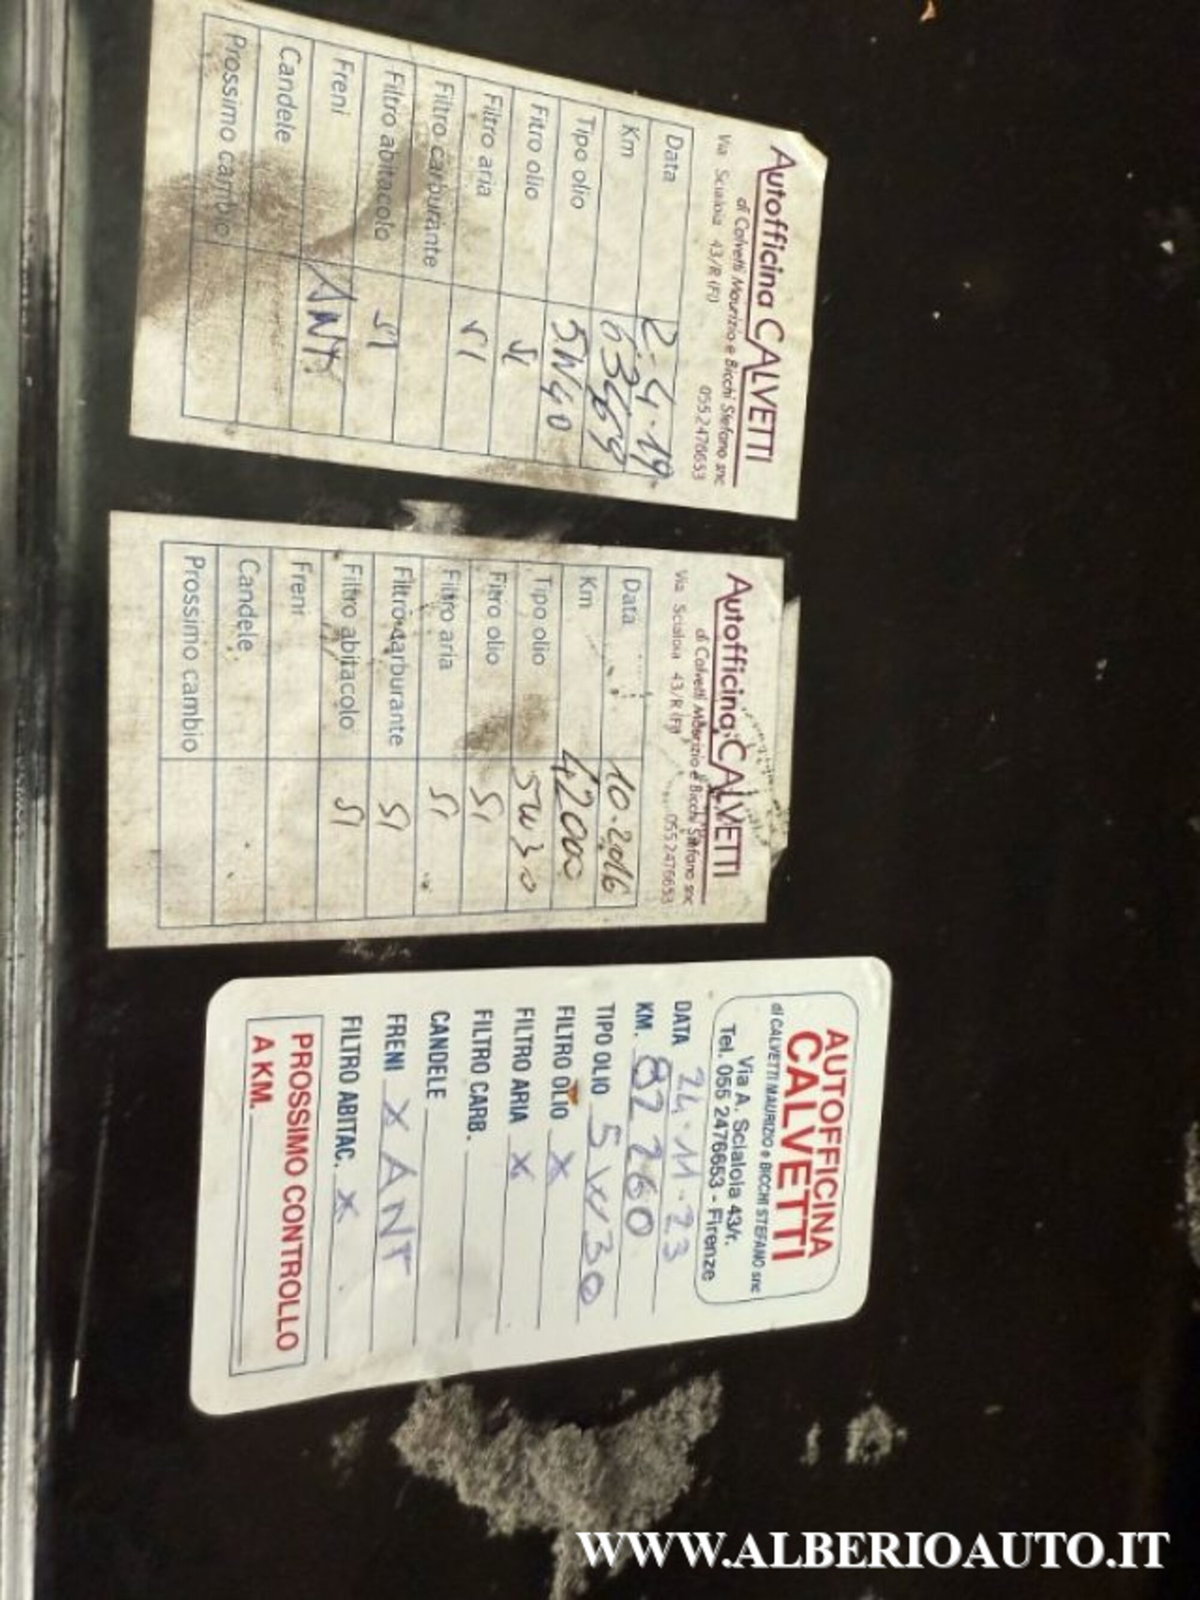 Autofficina CALVETTI
di Calvetti Maurizio e Bicchi Stefano snc
Via Scialoia 43/R (FI) 055.2476653
Data 2-4-19
Km 63469
Tipo olio 5W40
Fitro olio SI
Filtro aria SI
Filtro carburante
Filtro abitacolo SI
Freni ANT.
Candele
Prossimo cambio
Autofficina CALVETTI
di Calvetti Maurizio e Bicchi Stefano snc
Via Scialoia 43/R (FI) 055.2476653
Data 10-2016
Km 42000
Tipo olio 5W30
Fitro olio SI
Filtro aria SI
Filtro carburante SI
Filtro abitacolo SI
Freni
Candele
Prossimo cambio
AUTOFFICINA
CALVETTI
di CALVETTI MAURIZIO e BICCHI STEFANO snc
Via A. Scialoia 43/r.
Tel. 055 2476653 - Firenze
DATA 24-11-23
KM. 82260
TIPO OLIO 5W30
FILTRO OLIO X
FILTRO ARIA X
FILTRO CARB.
CANDELE
FRENI X ANT
FILTRO ABITAC. X
PROSSIMO CONTROLLO
A KM.
WWW.ALBERIOAUTO.IT